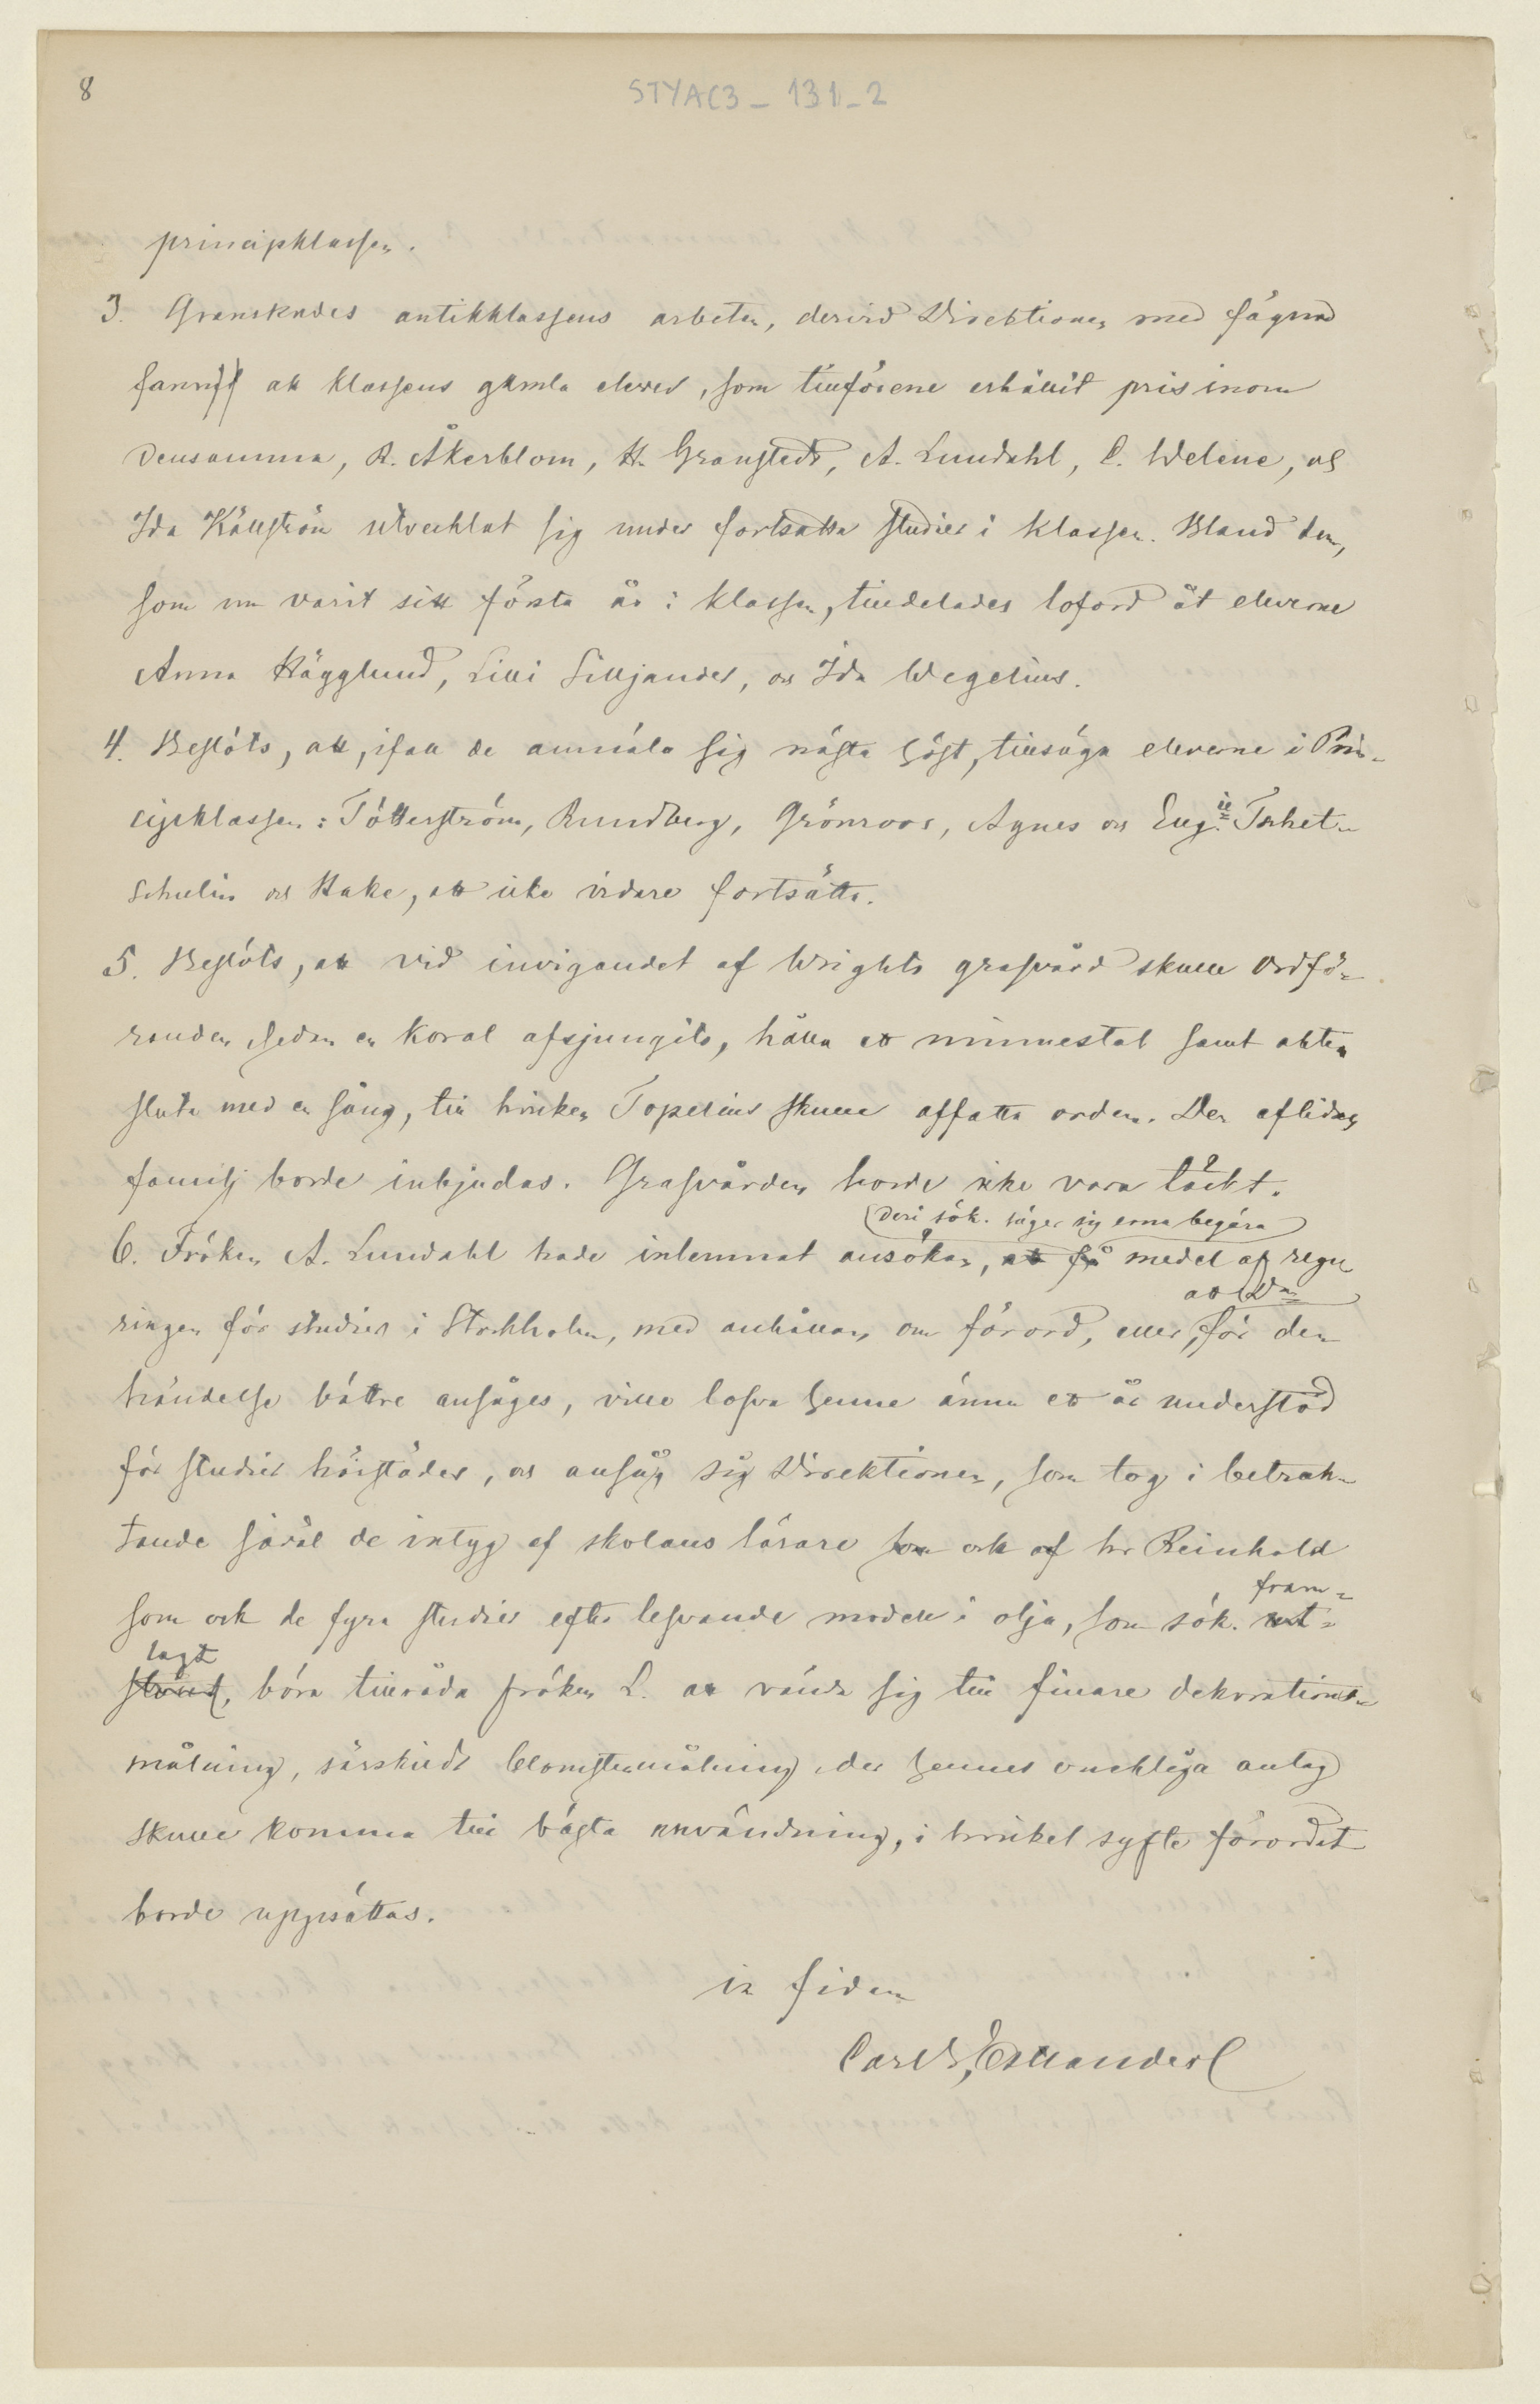 8
STYAC3_131_2
principklassen.
3. Granskades antikklassens arbeten, dervid Direktionen med fägnad
fann att klassens gamla elever, som tillförene erhållit pris inom
densamma, R. Åkerblom, H. Granstedt, A. Lundahl, C. Welene, och
Ida Källström utvecklat sig under fortsatta studier i klassen. Bland dem,
som nu varit sitt första år i klassen, tilldelades loford åt eleverne
Anna Hägglund, Lilli Silljander, och Ida Wegelius.
4. Beslöts, att, ifall de anmäla sig nästa höst, tillsäga eleverne i Prin-
cipklassen: Tötterström, Rundberg, Grönroos, Agnes och Eug.ie Tschet-
schulin och Hake, att icke vidare fortsätta.
5. Beslöts, att vid invigandet af Wrights grafvård skulle Ordfö-
randen sedan en koral afsjungits, hålla ett minnestal samt akten
sluta med en sång, till hvilken Topelius skulle affatta orden. Den aflidnes
familj borde inbjudas. Grafvården borde icke vara täckt.
(deri sök. säger sig ärna begära)
6. Fröken A. Lundahl hade inlemnat ansökan, att få medel af rege-
att Dn
ringen för studier i Stockholm, med anhållan om förord, eller, för den
händelse bättre ansåges, ville lofva henne ännu ett år understöd
för studier härstädes, och ansåg sig Direktionen, som tog i betrak-
tande såväl de intyg af skolans lärare som ock af hr Reinhold
fram-
som ock de fyra studier efter lefvande modell i olja, som sök. ut-
lagt
ställt, böra tillråda fröken L. att vända sig till finare dekorations-
målning, särskildt blomstermålning, der hennes onekliga anlag
skulle komma till bästa användning, i hvilket syfte förordet
borde uppsättas.
in fidem
Carl G. Estlander